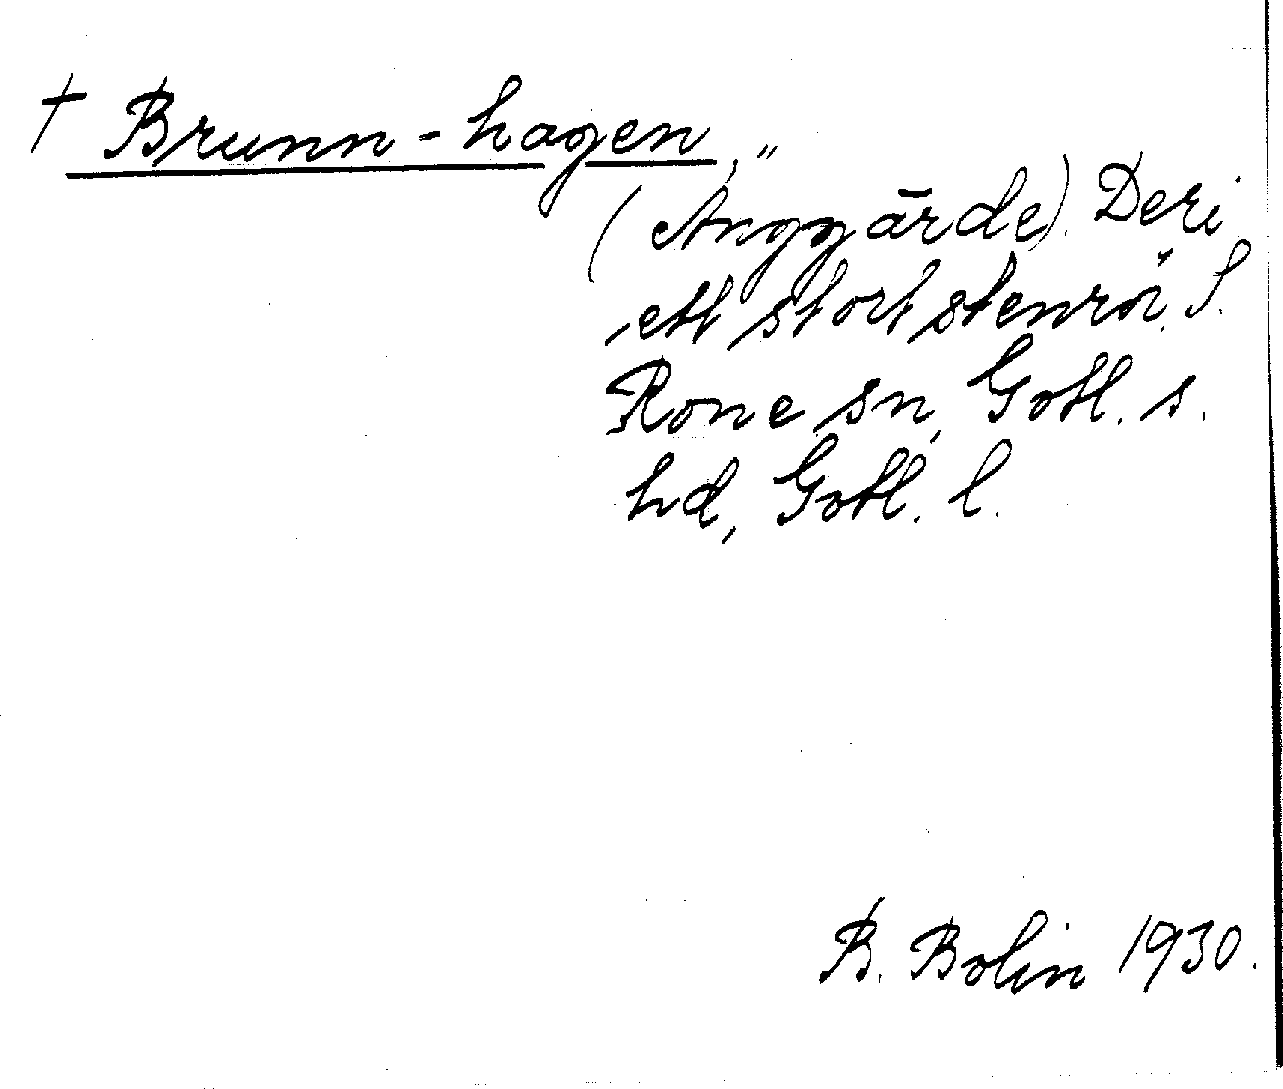 † Brunn-hagen, "
(Anggärde). Deri
ett stort stenrör. S.
Rone sn, Gotl. s.
hd, Gotl. l.
B. Bolin 1930.